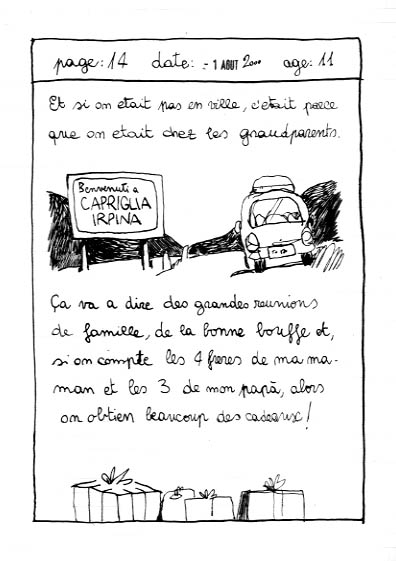 page: 14 date: - 1 AOUT 2000 age: 11
Et si on etait pas en ville, c'etait parce
que on etait chez les grandparents.
Benvenuti a
CAPRIGLIA
IRPINA
Ça va a dire des grandes reunions
de famille, de la bonne bouffe et,
si on compte les 4 freres de ma ma-
man et les 3 de mon papà, alors
on obtien beaucoup des cadeaux!